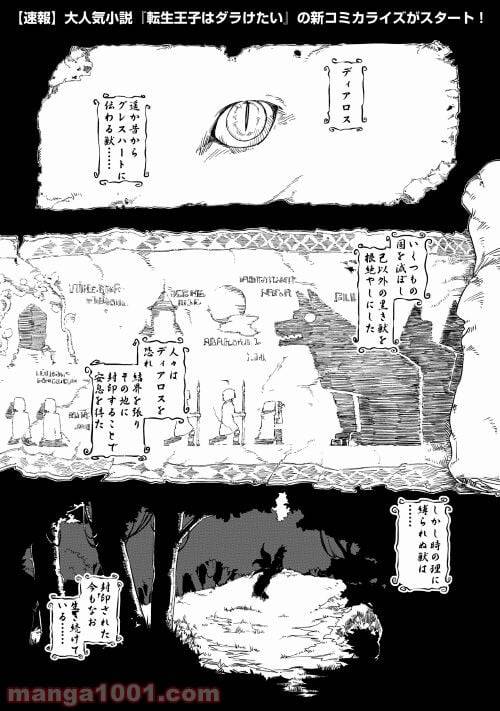 【速報】大人気小説『転生王子はダラけたい』の新コミカライズがスタート!
ディアロス
遥か昔から
グレスハートに
伝わる獣……
いくつもの
国を滅ぼし
己以外の黒き獣を
根絶やしにした
人々は
ディアロスを
恐れ
結界を張り
その地に
封印することで
安息を得た
しかし時の理に
縛られぬ獣は
……
封印された
今もなお
生き続けて
いる……
manga1001.com